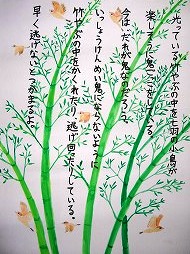 光っている竹やぶの中を七羽の小鳥が
楽しそうに鬼ごっこをしている。
今は、だれが鬼なのだろう。
いっしょうけんめい鬼にならないように
竹やぶの中をかくれたり、逃げ回ったりしている。
早く逃げないとつかまるよ。